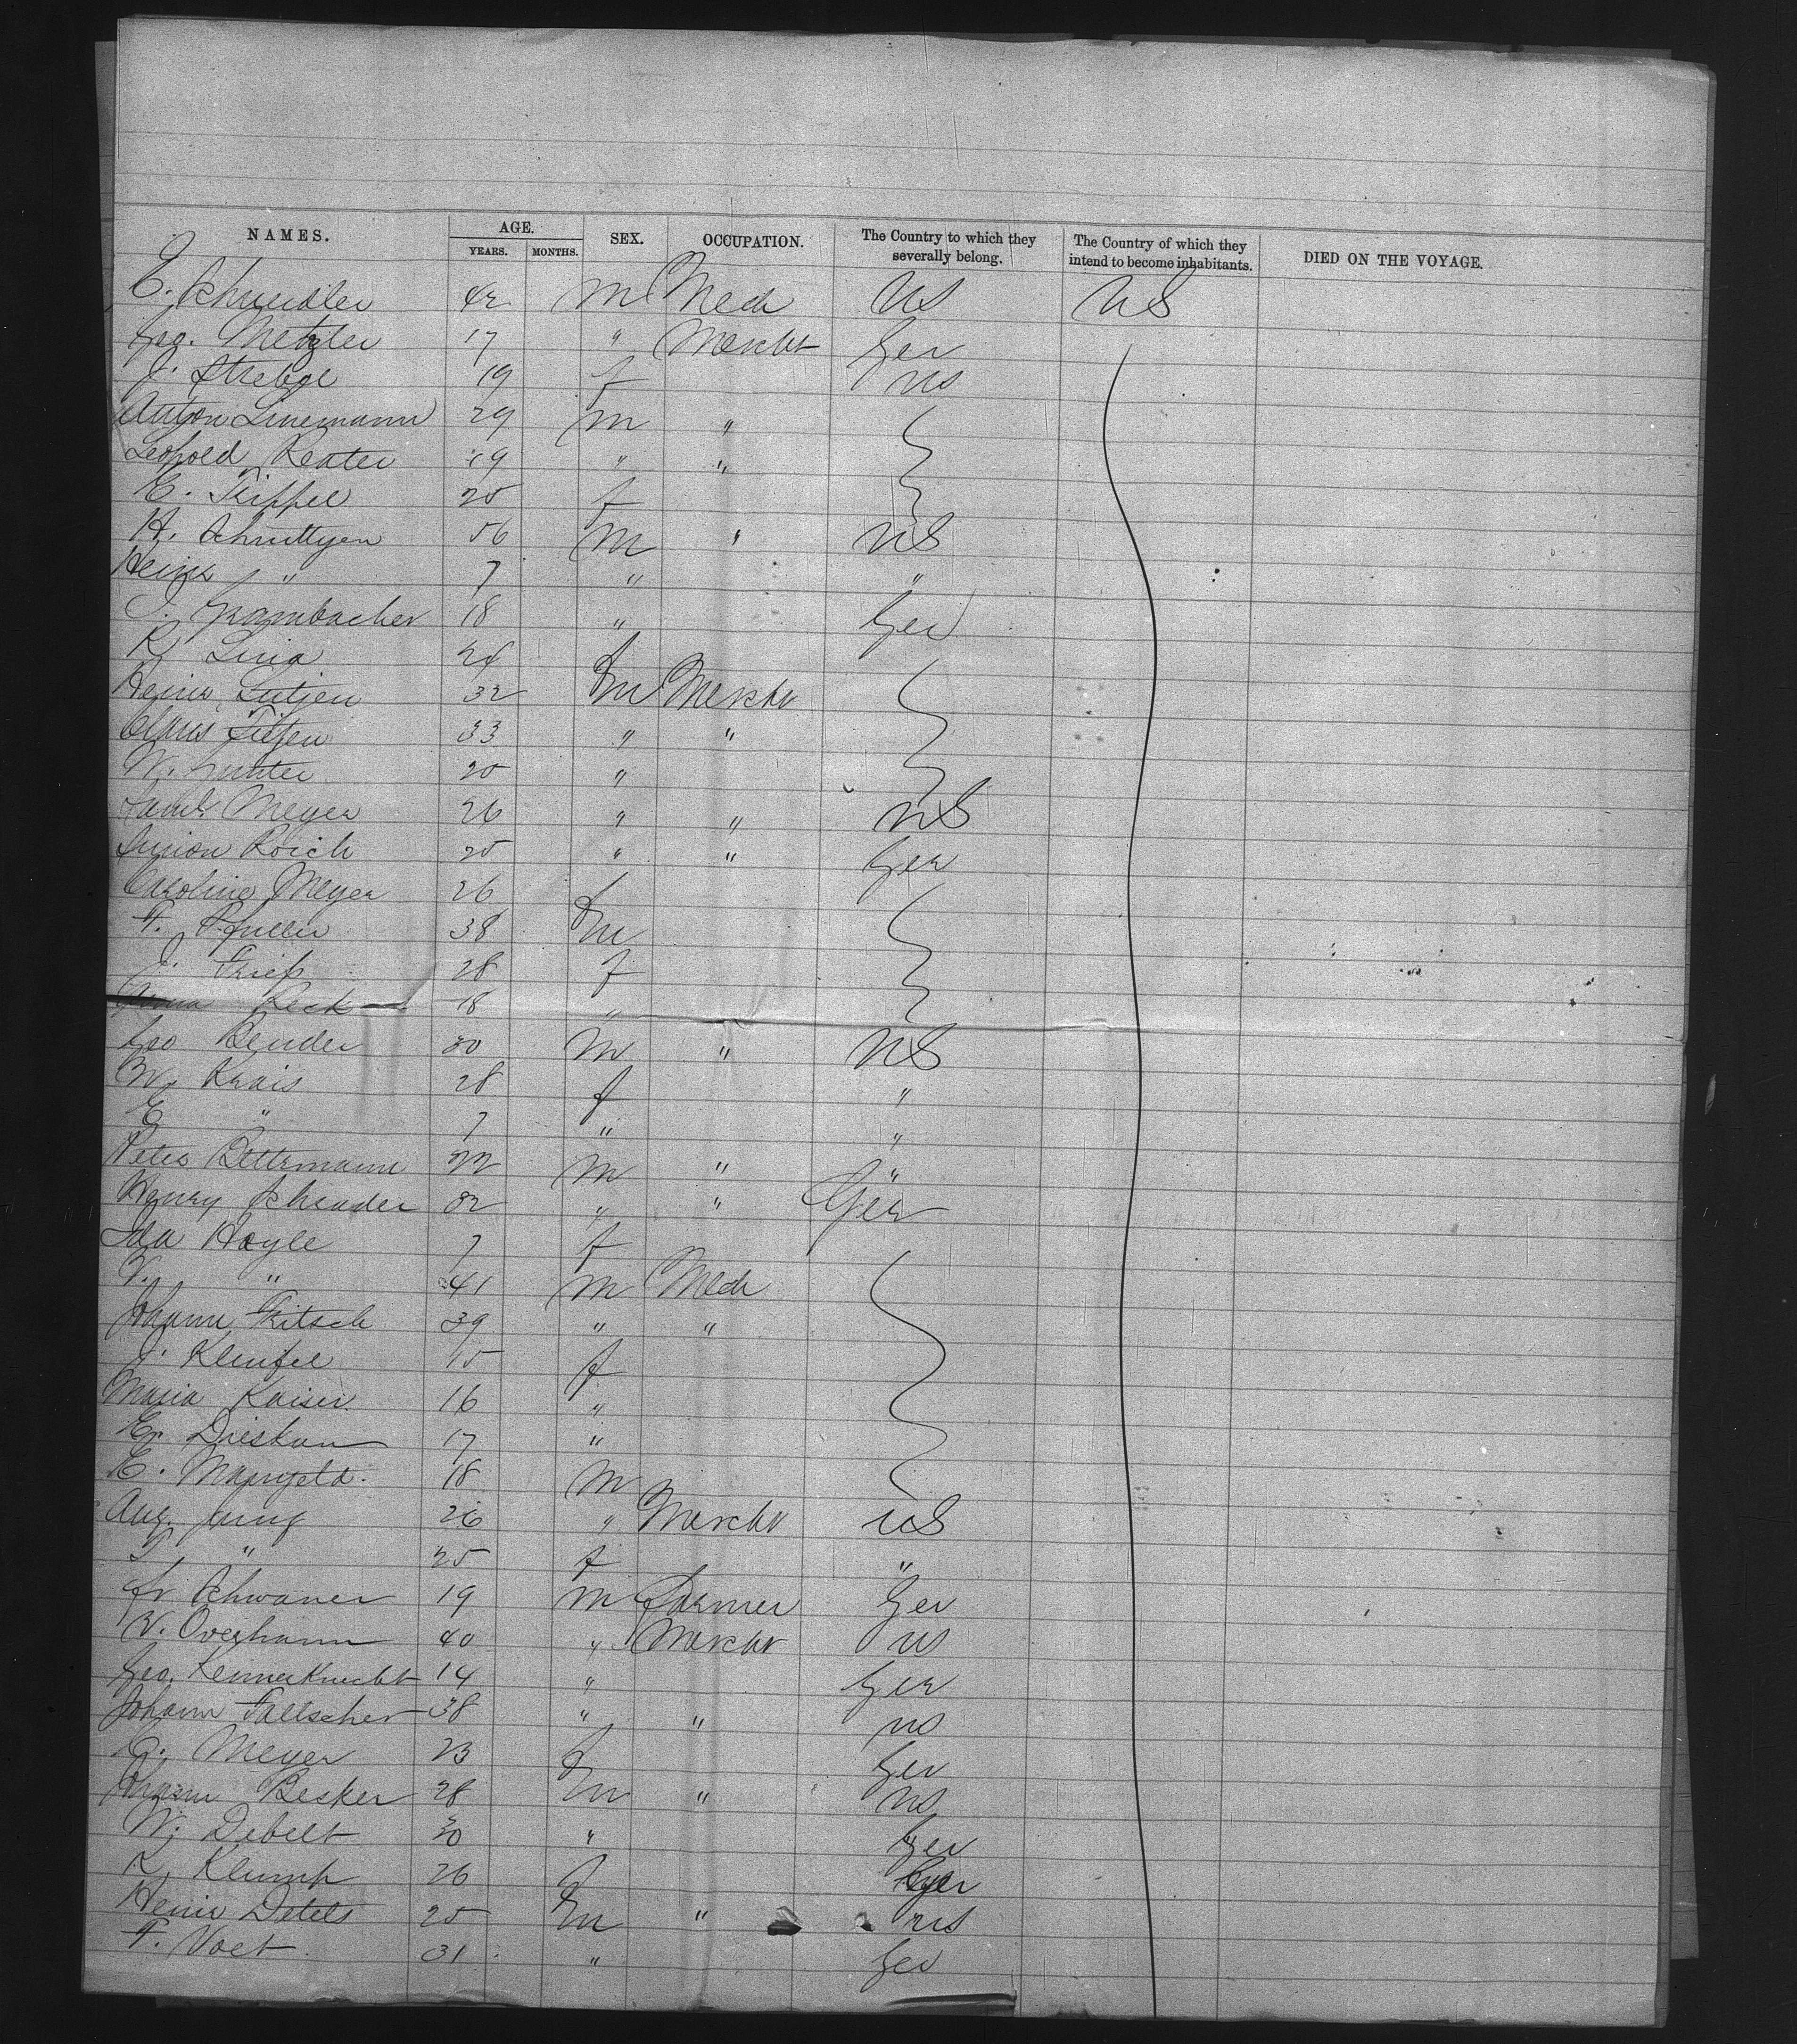 NAMES. AGE. SEX. OCCUPATION. The Country to which they severally belong. The Country of which they intend to become inhabitants. DIED ON THE VOYAGE.
YEARS. MONTHS.
E. Schneidler 42 m Mech US US
Geo. Metzler 17 " Mercht Ger
J. Strebge 19 f US
Anton Linemann 29 m "
Leopold Reater 19 " "
E. Trippel 25 f
H. 56 m " US
Heinr " 7 " "
J. Grambacher 18 " Ger
K Lina 24 f
Heinr Lutjen 32 m Mercht
Claus Titjen 33 " "
W. 20 "
Saml. Meyer 26 " " US
Simon Roich 25 " " Ger
Caroline Meyer 26 f
F. 38 m
J. Friess 28 f
Anna Keck 18 "
Geo Bender 30 m " US
W. Krais 28 f "
E " 7 " "
Peter Bettzmann 22 m " "
Henry Schrader 32 " " Ger
Ida Hoyle 7 f
V. " 41 m Mech
Johann Fritsch 39 " "
J. 15 f
Maria Kaiser 16 "
E. Dieskau 17 "
E. 18 m
Aug. Jung 26 " Mercht US
L " 25 f "
Fr Schwaner 19 m Farmer Ger
V. Overhamm 40 " Mercht US
Geo. Kennerknecht 14 " Ger
Johann Fallscher 38 " " US
C. Meyer 23 f Ger
Johann Besker 28 m " US
W. Debelt 30 " Ger
K. Klump 26 f Ger
Heinr Detels 25 m " US
F. Voet 31 " Ger